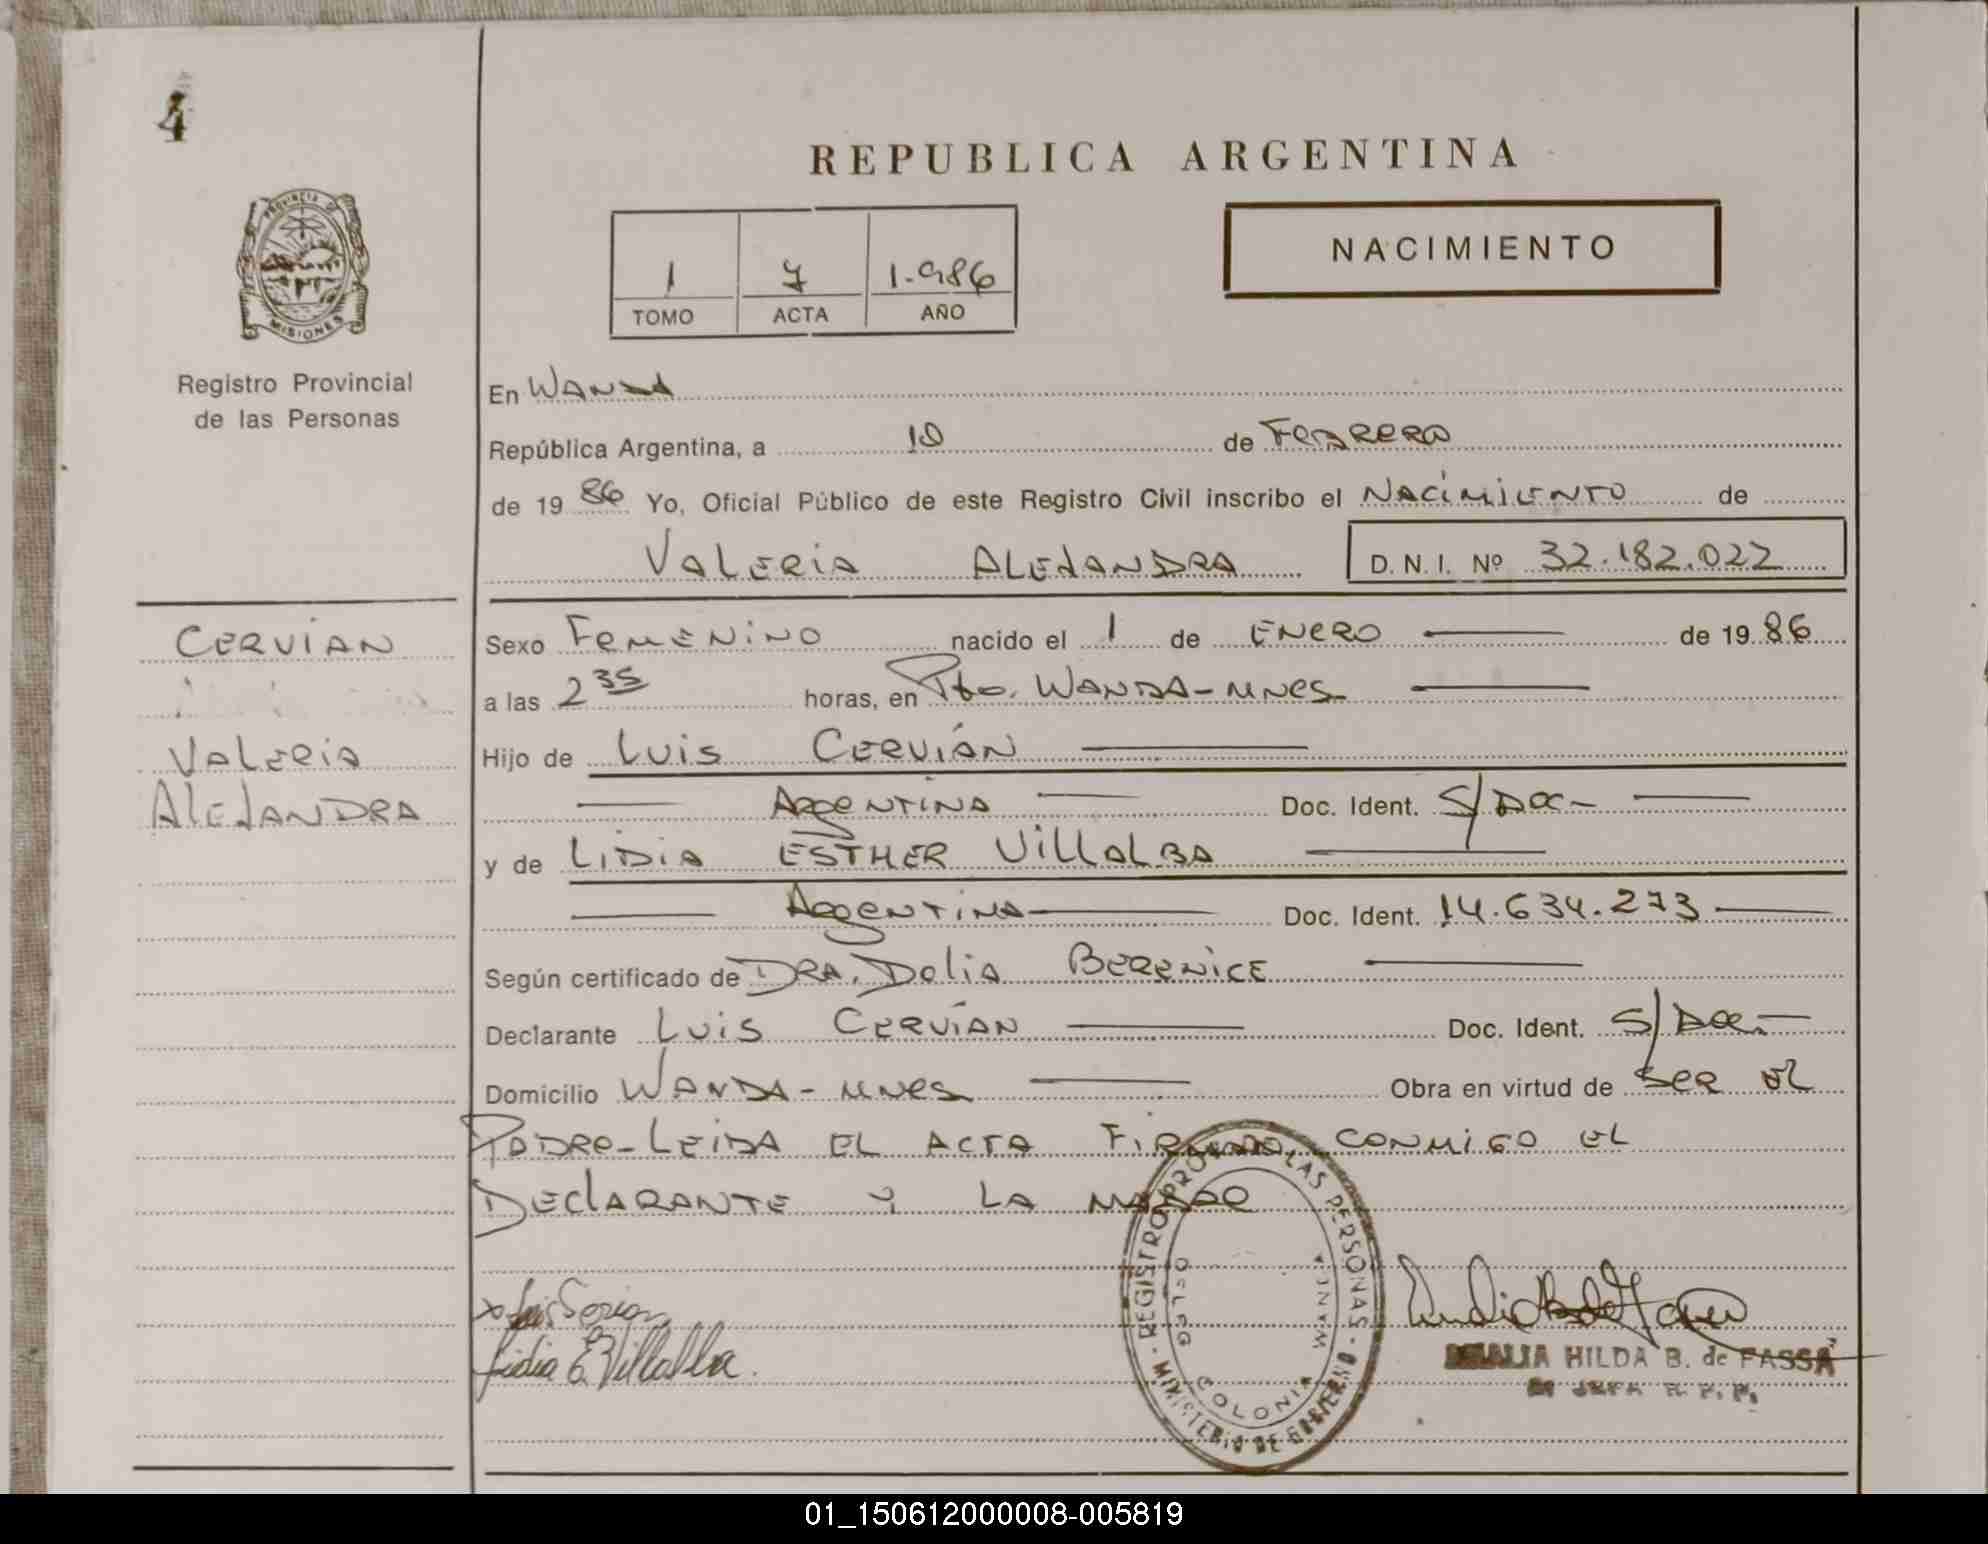 4
PROVINCIA DE
MISIONES
Registro Provincial
de las Personas
CERVÍAN
VALERIA
ALEJANDRA
REPUBLICA ARGENTINA
NACIMIENTO
1 7 1.986
TOMO ACTA AÑO
En WANDA
República Argentina, a 10 de FEBRERO
de 19 86 Yo, Oficial Público de este Registro Civil inscribo el NACIMIENTO de
VALERIA ALEJANDRA D. N. I. Nº 32.182.022
Sexo FEMENINO nacido el 1 de ENERO de 19 86
a las 2 35 horas, en Pto. WANDA - MNES
Hijo de LUIS CERVIÁN
ARGENTINA Doc. Ident. S/DOC -
y de LIDIA ESTHER VILLALBA
ARGENTINA Doc. Ident. 14.634.273
Según certificado de DRA. DELIA BERENICE
Declarante LUIS CERVÍAN Doc. Ident. S/DOC. -
Domicilio WANDA - MNES Obra en virtud de SER EL
PADRE - LEIDA EL ACTA FIRMADO CONMIGO EL
DECLARANTE Y LA MADRE
REGISTRO PROV. DE LAS PERSONAS
MINISTERIO DE GOBIERNO
COLONIA WANDA
Lidia E. Villalba.
AMALIA HILDA B. de FASSA
JEFA R. P. P.
01_150612000008-005819